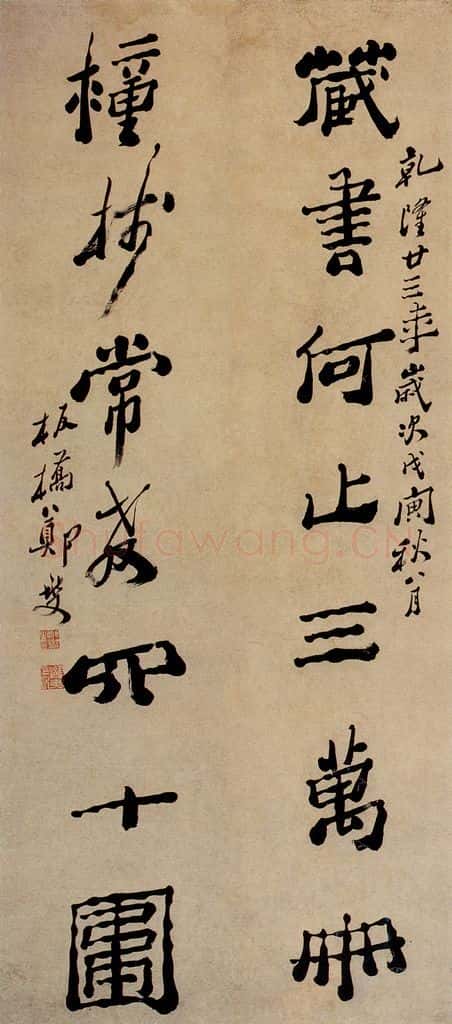 乾隆廿三年歲次戊寅秋八月
藏書何止三萬冊
種樹常教四十圍
板橋鄭燮
shufawang.CN